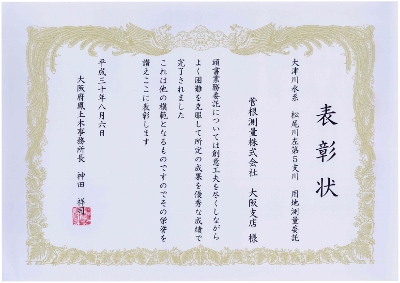 表彰状
大津川水系　松尾川左第５支川　用地測量委託
菅根測量株式会社　大阪支店 様
頭書業務委託については創意工夫を尽くしながら
よく困難を克服して所定の成果を優秀な成績で
完了されました
これは他の模範となるものですのでその栄誉を
讃えここに表彰します
平成三十年八月六日
大阪府鳳土木事務所長　神田 祥司